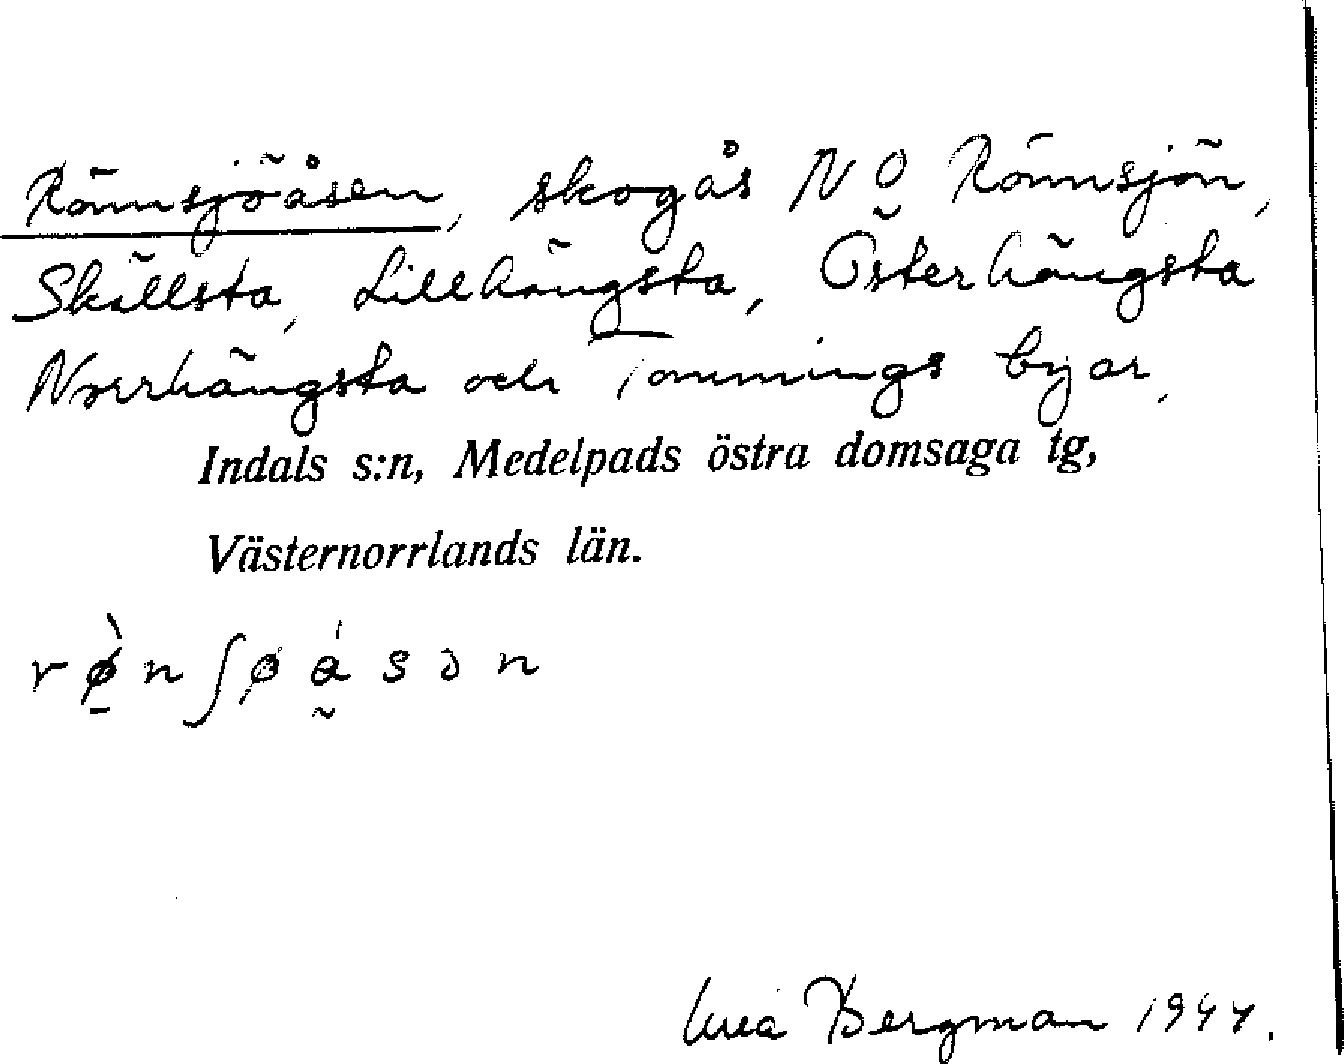 Rönnsjöåsen, skogås NO Rönnsjön,
Skällsta, Lillhängsta, Österhängsta
Norrhängsta och Tommings byar,
Indals s:n, Medelpads östra domsaga tg,
Västernorrlands län.
rø̠̀nʃøǻ̰sən
Bergman 1944.